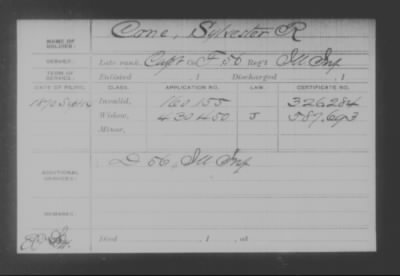 NAME OF SOLDIER: Cone, Sylvester R
SERVICE: Late rank, Capt Co. F, 56 Reg't Ill Inf
TERM OF SERVICE: Enlisted , 1 Discharged , 1
DATE OF FILING. CLASS. APPLICATION NO. LAW. CERTIFICATE NO.
1870 Sept 14 Invalid, 160 155 326284
Widow, 430 450 J 387,693
Minor,
ADDITIONAL SERVICES: D 56, Ill Inf
REMARKS:
Died , 1 , at